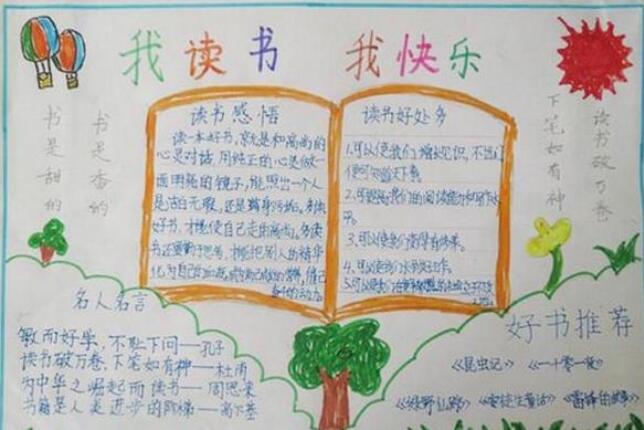 我读书 我快乐
书是甜的
书是香的
下笔如有神
读书破万卷
读书感悟
读一本好书，就是和高尚的
心灵对话，用纯正的心灵做一
面明亮的镜子，能照出一个人
是洁白无瑕，还是
好书，才能使自己走向高尚。多读
书还要勤于思考，才能把别人的精华
化为自己的
读书好处多
1.可以使我们增长见识，不出门
便可知道天下事。
2.可提高我们的阅读能力和写作水
平。
3.可以使我们变得有修养。
4.可以使我们
5.可以使我们
名人名言
敏而好学，不耻下问——孔子
读书破万卷，下笔如有神——杜甫
为中华之崛起而读书——周恩来
书籍是人类进步的阶梯——高尔基
好书推荐
《昆虫记》 《一千零一夜》
《绿野仙踪》 《安徒生童话》 《雷锋的故事》